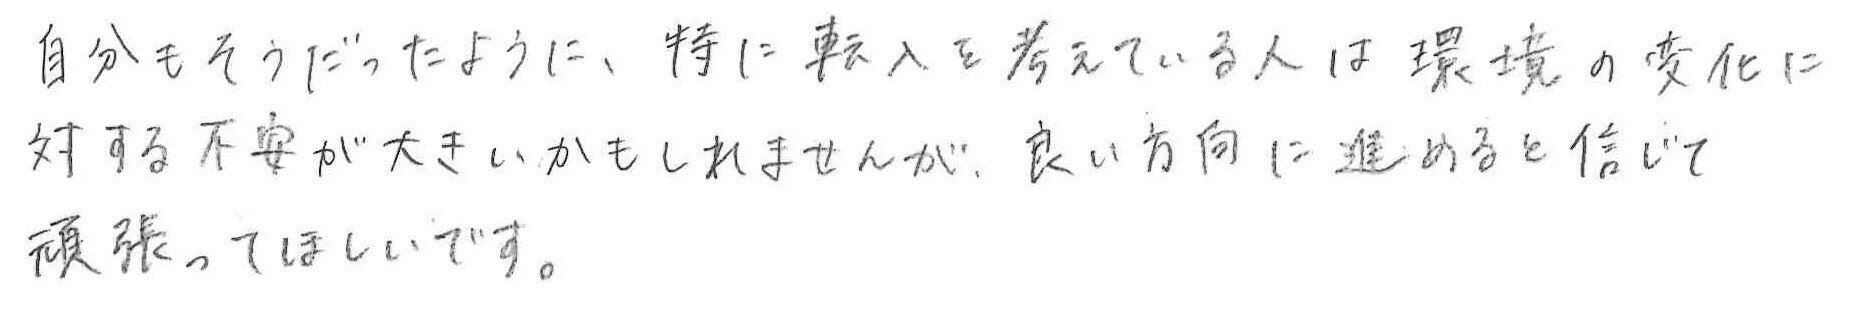 自分もそうだったように、特に転入を考えている人は環境の変化に
対する不安が大きいかもしれませんが、良い方向に進めると信じて
頑張ってほしいです。